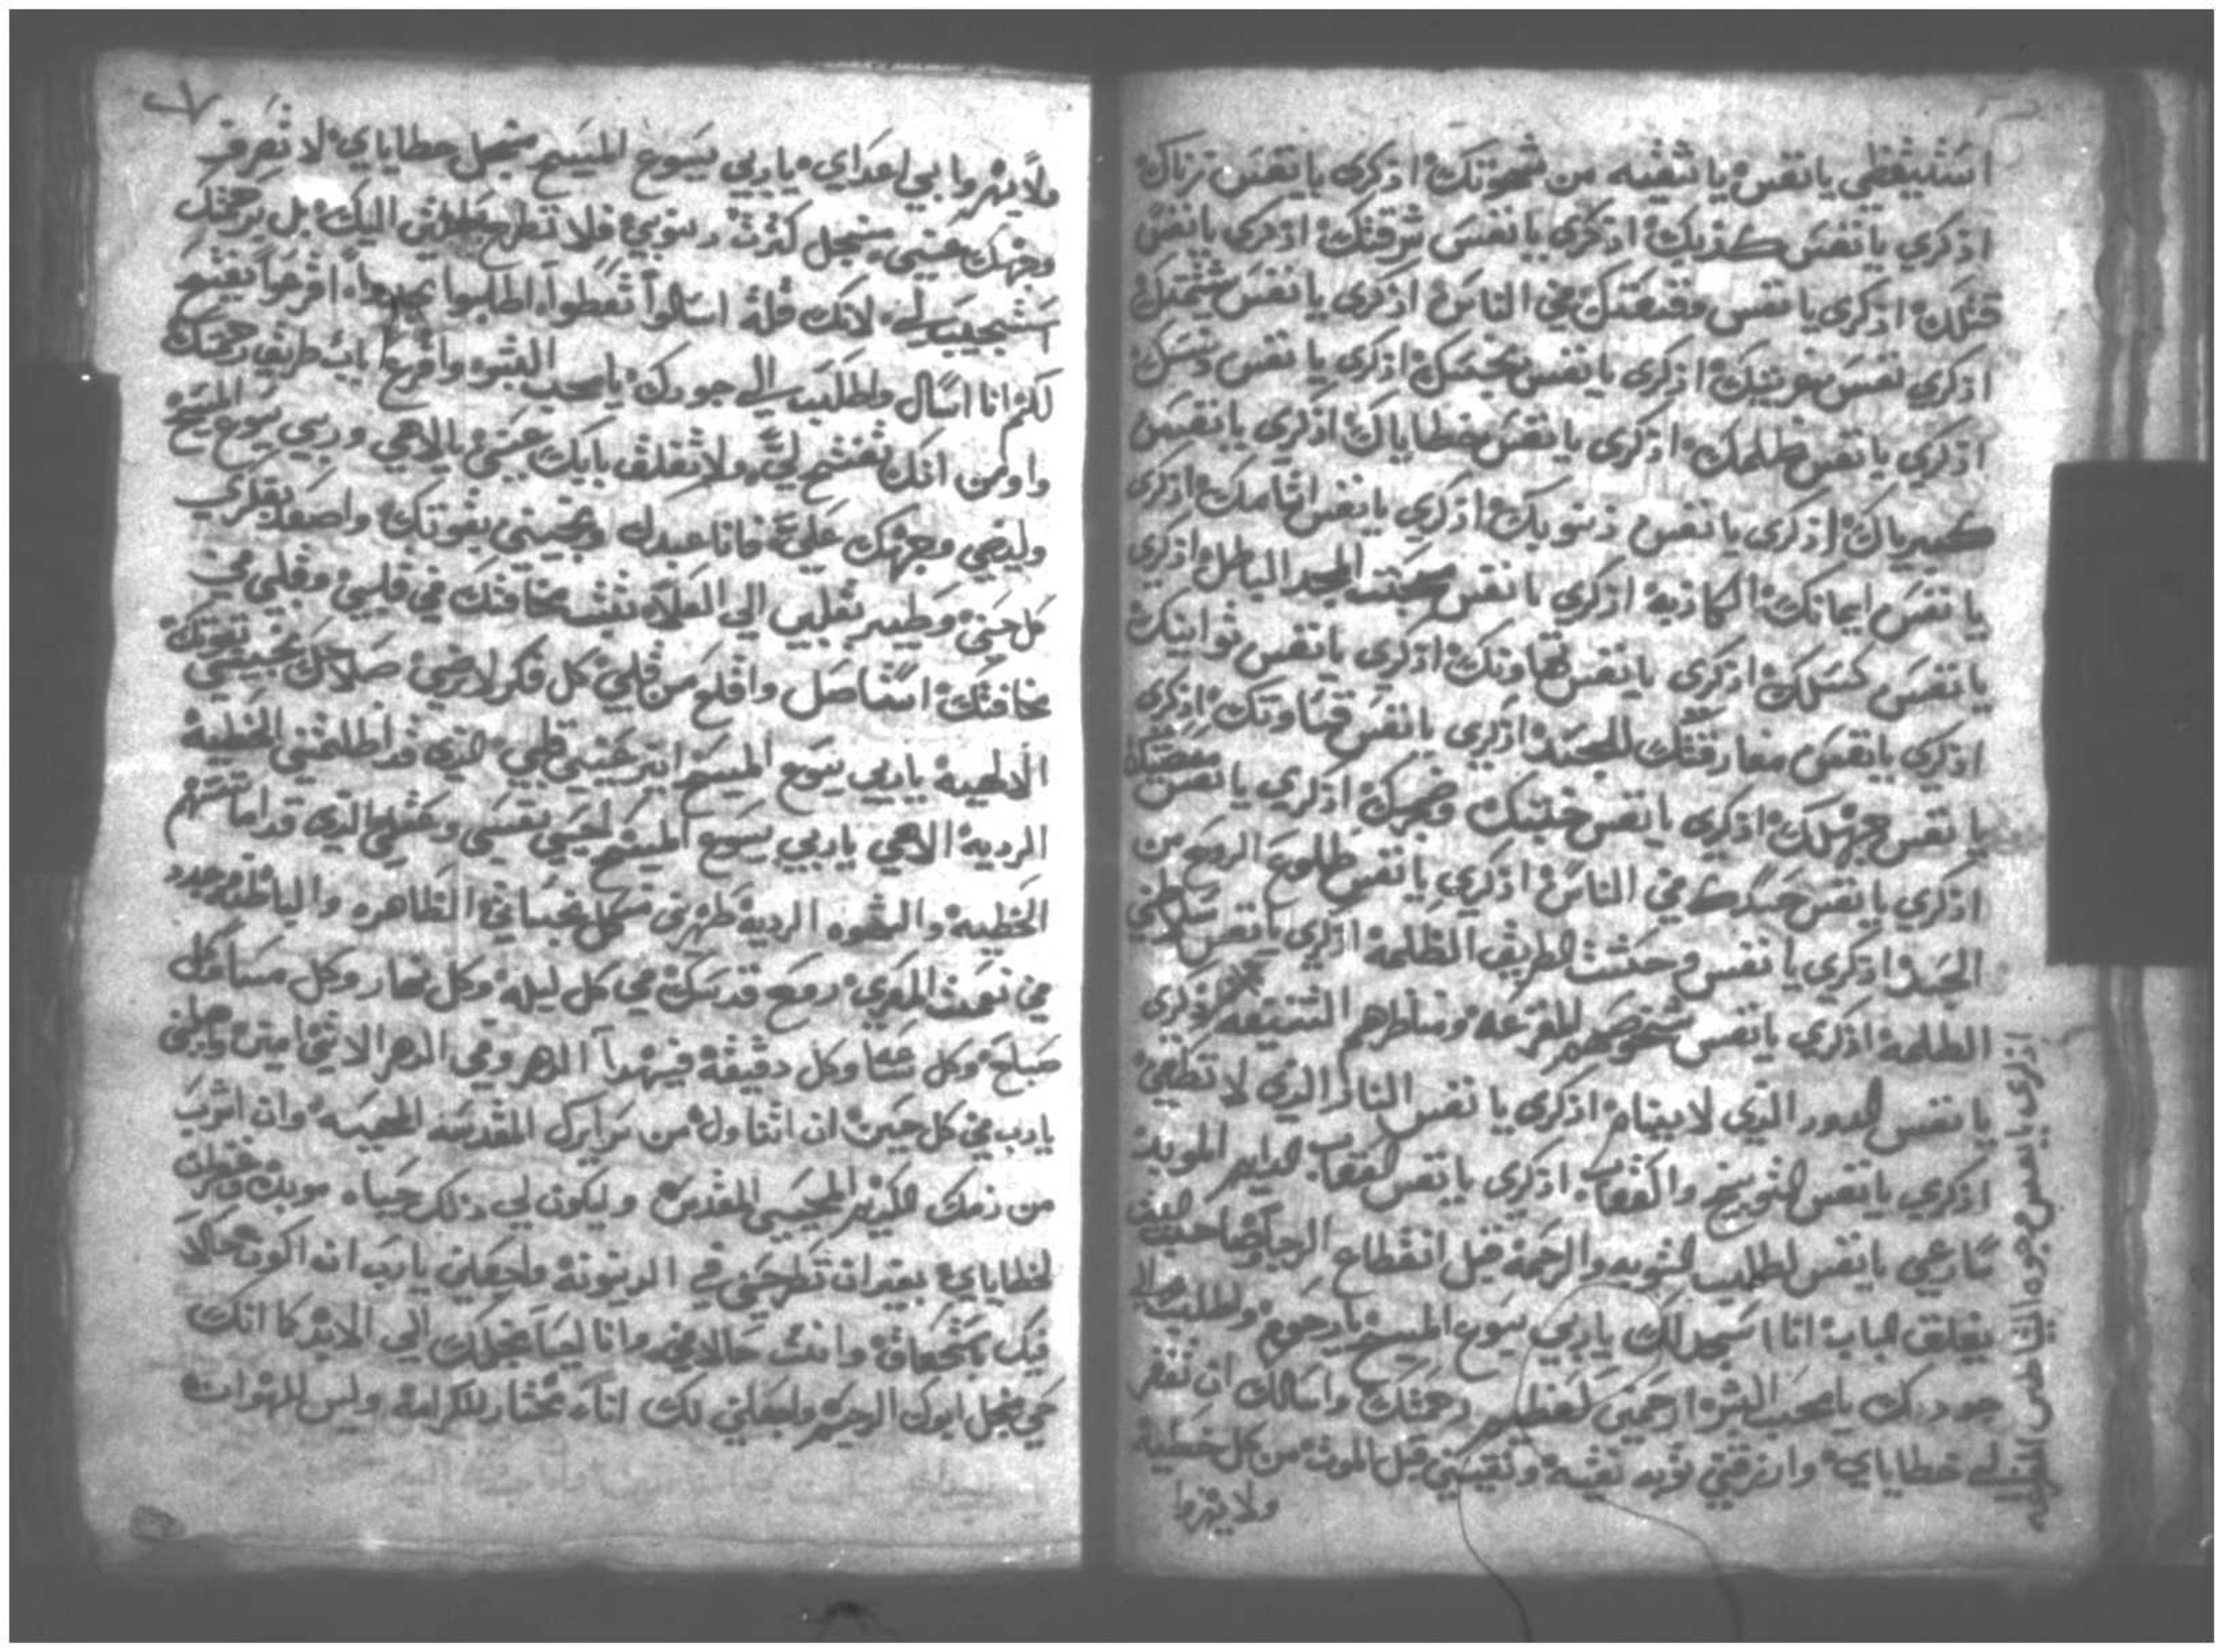 استيقظي يا نفس يا شقيه من شهوتك اذكرى يا نفس زناك
اذكري يا نفس كذبك اذكري يا نفس سرقتك اذكري يا نفس
قتلك اذكرى يا نفس وقيعتك في الناس اذكرى يا نفس شتيمتك
اذكري نفس اذكرى يا نفس نجسك اذكرى يا نفس
اذكري يا نفس ظلمك اذكرى يا نفس خطاياك اذكرى يا نفس
كبرياك اذكرى يا نفس ذنوبك اذكري يا نفس اثامك اذكرى
يا نفس ايمانك الكاذبة اذكري يا نفس محبت المجد الباطل اذكرى
يا نفس كسلك اذكرى يا نفس تهاونك اذكرى يا نفس توانيك
اذكري يا نفس مفارقتك للجسد اذكرى يا نفس قساوتك اذكرى
يا نفس جهلك اذكرى يا نفس خبثك اذكري يا نفس
اذكري يا نفس حسدك في الناس اذكري يا نفس طلوع الروح من
الجسد اذكري يا نفس وحشت الطريق المظلمة اذكرى يا نفس
الظلمة اذكري يا نفس المفزعة ومناظرهم الشنيعه اذكرى
يا نفس الدود الذي لا ينام اذكرى يا نفس النار الذي لا تطفي
اذكري يا نفس التوبيخ اذكرى يا نفس العقاب الدايم الموبد
سارعي يا نفس لطلب التوبه والرحمة قبل انقطاع الرجا
يغلق الباب انا اسجد لك يا ربي يسوع المسيح يا رحوم واطلب الى
جودك يا محب البشر ارحمني كعظيم رحمتك واسالك ان تغفر
لي خطاياي وارزقني توبه نقية ونقيني قبل الموت من كل خطية
ولا يهزوا
اذكرى يا نفس
ولا يهزوا بي اعداي يا ربي يسوع المسيح منجل خطاياي لا تصرف
وجهك عني منجل كثرت دنوبي فلا تطرح طلبتي اليك بل برحمتك
استجيب لي لانك قلة اسالوا تعطوا اطلبوا تجدوا اقرعوا يفتح
لكم انا اسال واطلب الى جودك يا محب البشر واقرع باب طريق رحمتك
واومن انك تفتح لي ولا تغلق بابك عني يا الاهي وربي يسوع المسيح
وليضي وجهك علي فانا عبدك ونجيني بقوتك واصعد بفكري
كل حين وطير بقلبي الى العلا تثبت مخافتك في قلبي وقلبي في
مخافتك استاصل واقلع من قلبي كل فكر لا يرضي صلاحك نجيني بقوتك
الالهية يا ربي يسوع المسيح انير عيني قلبي الذي قد اظلمتني الخطية
الردية الاهي يا ربي يسوع المسيح احيي نفسي وعقلي الذي قد اماتتهم
الخطيه والشهوه الردية طهرني من كل نجساتي الظاهره والباطنه وجدد
في نعمت المعزي روح قدسك في كل ليله وكل نهار وكل مسا وكل
صباح وكل سا وكل دقيقة في هدا الدهر وفي الدهر الاتي امين واجعلني
يا رب في كل حين ان اتناول من سرايرك المقدسه المحييه وان اشرب
من دمك الكريم المحيي المقدس وليكون لي ذلك حياه موبده وغفران
لخطاياي بغير ان تطرحني في الدينونة واجعلني يا رب ان اكون حالا
فيك باستحقاق وانت حالا في وانا ايضا منجلك الى الابد كما انك
حي منجل ابوك الرحيم واجعلني لك اناء مختار للكرامة وليس للهوان